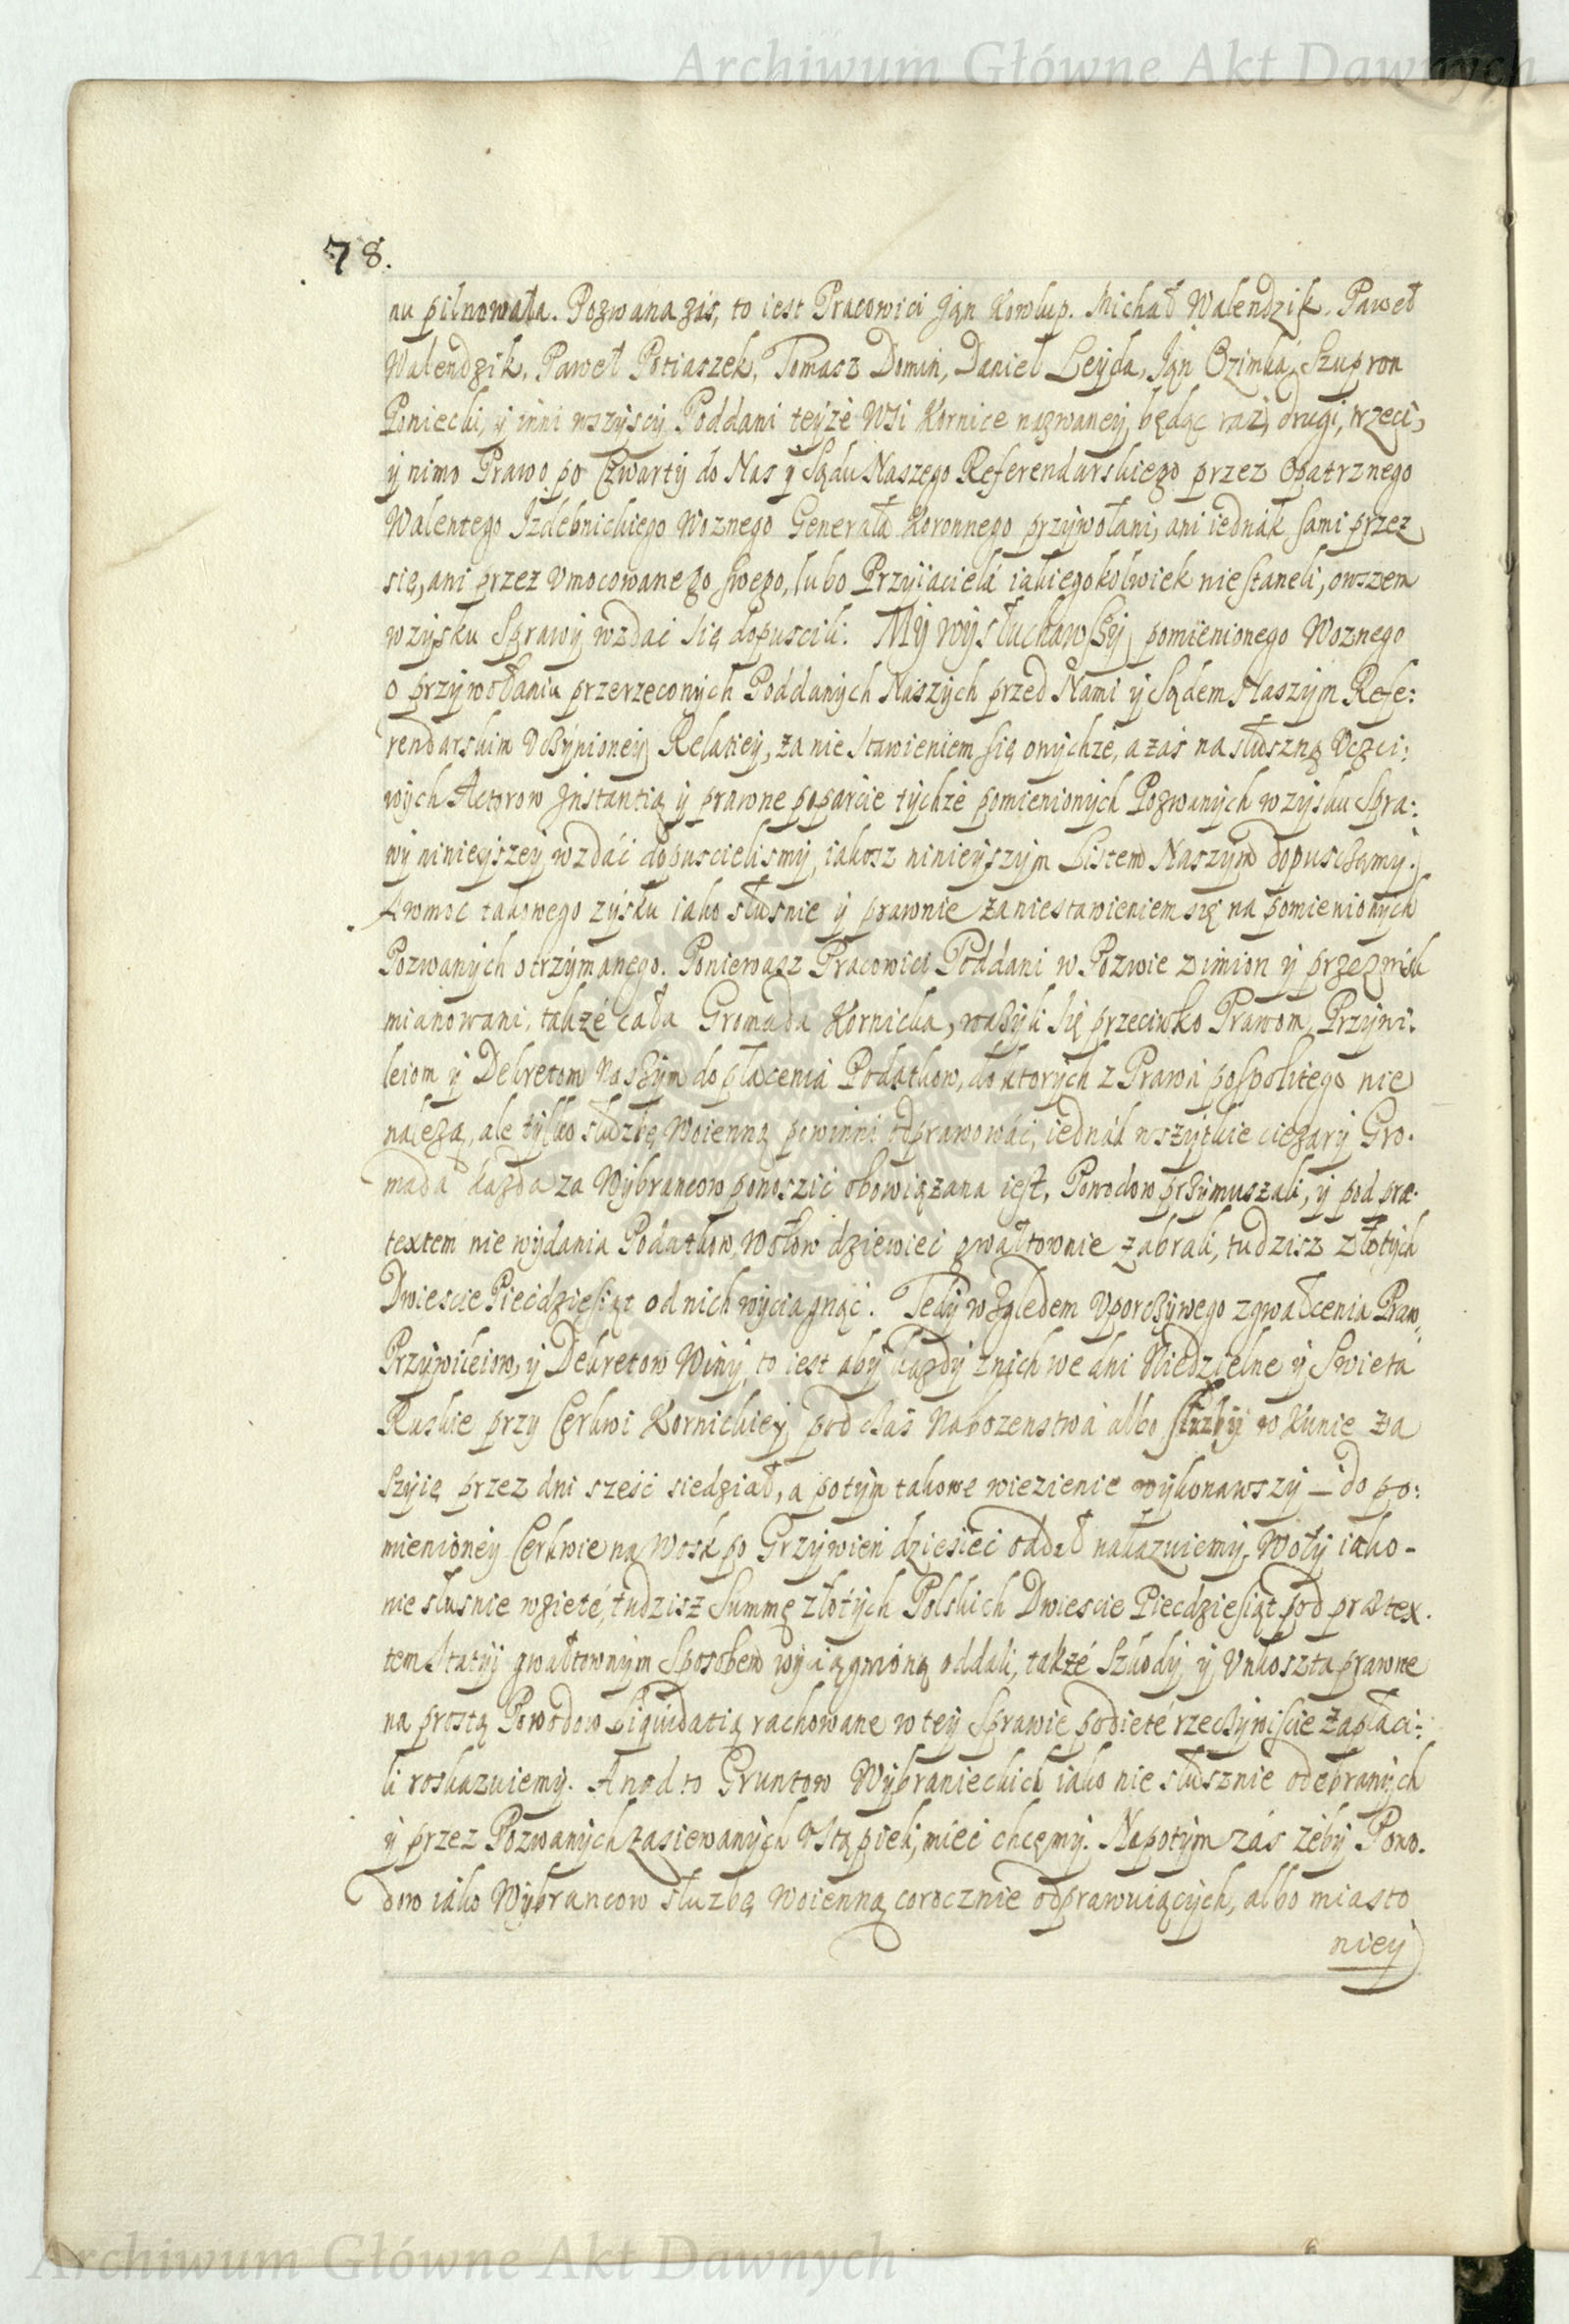 Archiwum Główne Akt Dawnych
78.
nu pilnowała. Pozwana zás, to iest Pracowici Ján Kowlup. Michał Walendzik. Paweł
Walendzik. Paweł Potiaszek, Tomasz Domin, Daniel Leyda, Ján Ozimka, Szupron
Poniecki, y inni wszyscy Poddani teyże Wsi Kornice nazwaney, będąc raz, drugi, trzeci,
y nimo Prawo po Czwarty do Nas y Sądu Naszego Referendarskiego przez Opatrznego
Walentego Izdebnickiego Woznego Generała Koronnego przywołani, ani iednák sami przez
się, ani przez Vmocowanego swego, lubo Przyiacielá iakiegokolwiek nie staneli, owszem
wzysku Sprawy wzdac się dopuscili. My wysłuchawszy pomienionego Woznego
o przywołaniu przerzeconych Poddanych Naszych przed Nami y Sądem Naszym Refe:
rendarskim Vczynioney Relatiey, za nie stawieniem się onychże, a zás na słuszną Vczci:
wych Actorow Instantią y prawne poparcie tychże pomienionych Pozwanych wzysku Spra:
wy ninieyszey wzdáć dopuscielismy, iakosz ninieyszym Listem Naszym dopusczamy.
A wmoc takowego zysku iako słusnie y prawnie za niestawieniem się na pomienionych
Pozwanych otrzymanego. Poniewasz Pracowici Poddani w Pozwie z imion y przezwisk
mianowani, także cała Gromada Kornicka, wazyli się przeciwko Prawom, Przywi:
leiom y Dekretom Naszym do płacenia Podatkow, do ktorych z Prawa pospolitego nie
nalezą, ale tylko słuzbę Woienną powinni odprawowáć, iednák wszytkie cięzary Gro.
mada kazda za Wybrancow ponosić obowiązana iest, Powodow przymuszali, y pod præ.
textem nie wydania Podatkow, Wołow dziewieć gwałtownie zabrali, tudzisz złotych
Dwiescie Piećdziesiąt od nich wyciagnąć. Tedy względem Vporczywego zgwałcenia Praw,
Przywileiow, y Dekretow Winy, to iest aby kazdy znich we dni Niedzielne y Swieta
Ruskie przy Cerkwi Kornickiey pod czas Nabozenstwa albo słuzby w Kunie za
szyię przez dni sześć siedział, a potym takowe wiezienie wykonawszy – do po:
mienioney Cerkwie na Wosk po Grzywien dziesieć oddał nakazuiemy. Woły iako –
nie słusnie wziete, tudzisz Summę złotych Polskich Dwiescie Piecdziesiąt pod prætex.
tem Statij gwałtownym Sposobem wyciągnioną oddali, także Szkody y Vnkoszta prawne
na prostą Powodow Liquidatią rachowane w tey Sprawie podiete rzeczywiscie zapłaci:
li roskazuiemy. A nad to Gruntow Wybranieckich iako nie słusznie odebranych
y przez Pozwanych zasiewanych Vstąpieli, mieć chcemy. Napotym zás zeby Powo.
dow iáko Wybrancow słuzbę Woienną corocznie odprawuiących, albo miasto
niey
Archiwum Główne Akt Dawnych